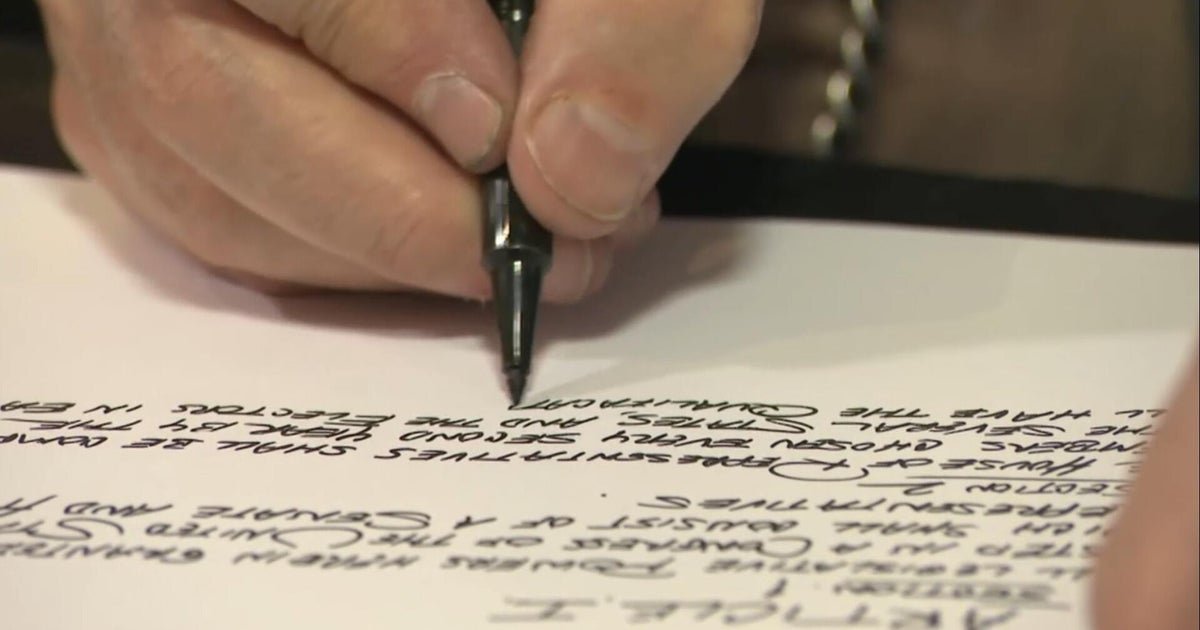 ARTICLE I
SECTION 1
LL LEGISLATIVE POWERS HEREIN GRANTED
STED IN A CONGRESS OF THE UNITED STA
ICH SHALL CONSIST OF A SENATE AND H
EPRESENTATIVES
SECTION 2
E HOUSE OF REPRESENTATIVES SHALL BE COMP
EMBERS CHOSEN EVERY SECOND YEAR BY THE
HE SEVERAL STATES, AND THE ELECTORS IN EA
LL HAVE THE